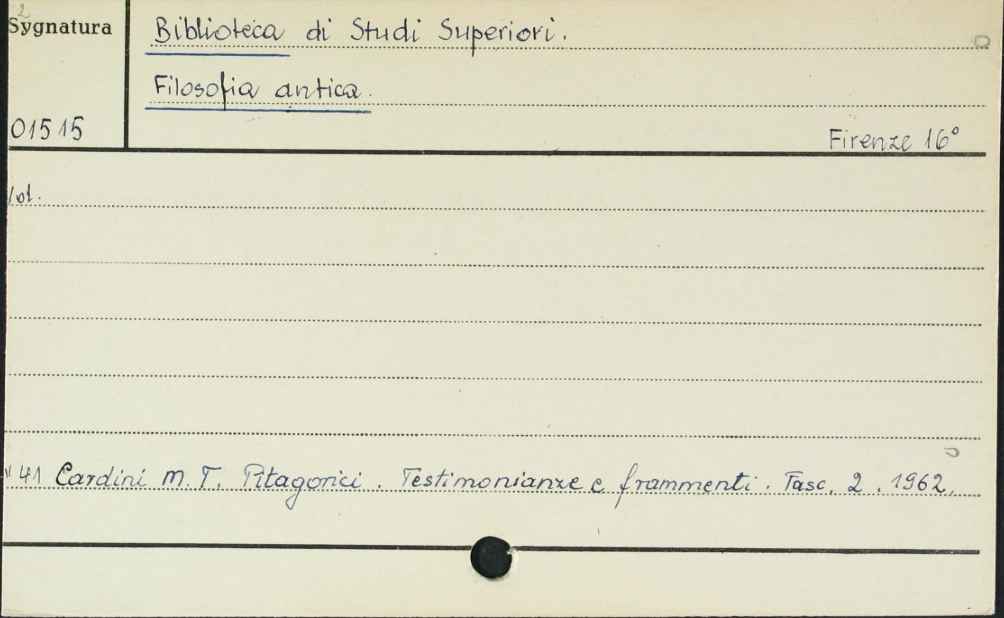 Sygnatura
Biblioteca di Studi Superiori.
Filosofia antica.
01515
Firenze 16°
Vol.
" 41 Cardini M. T. Pitagorici. Testimonianze e frammenti. Fasc. 2. 1962.